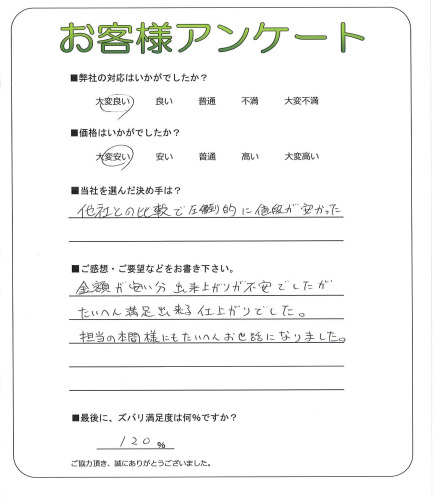 お客様アンケート
■弊社の対応はいかがでしたか？
大変良い 良い 普通 不満 大変不満
■価格はいかがでしたか？
大変安い 安い 普通 高い 大変高い
■当社を選んだ決め手は？
他社との比較で圧倒的に値段が安かった
■ご感想・ご要望などをお書き下さい。
金額が安い分出来上がりが不安でしたが
たいへん満足出来る仕上がりでした。
担当の本間様にもたいへんお世話になりました。
■最後に、ズバリ満足度は何％ですか？
120％
ご協力頂き、誠にありがとうございました。